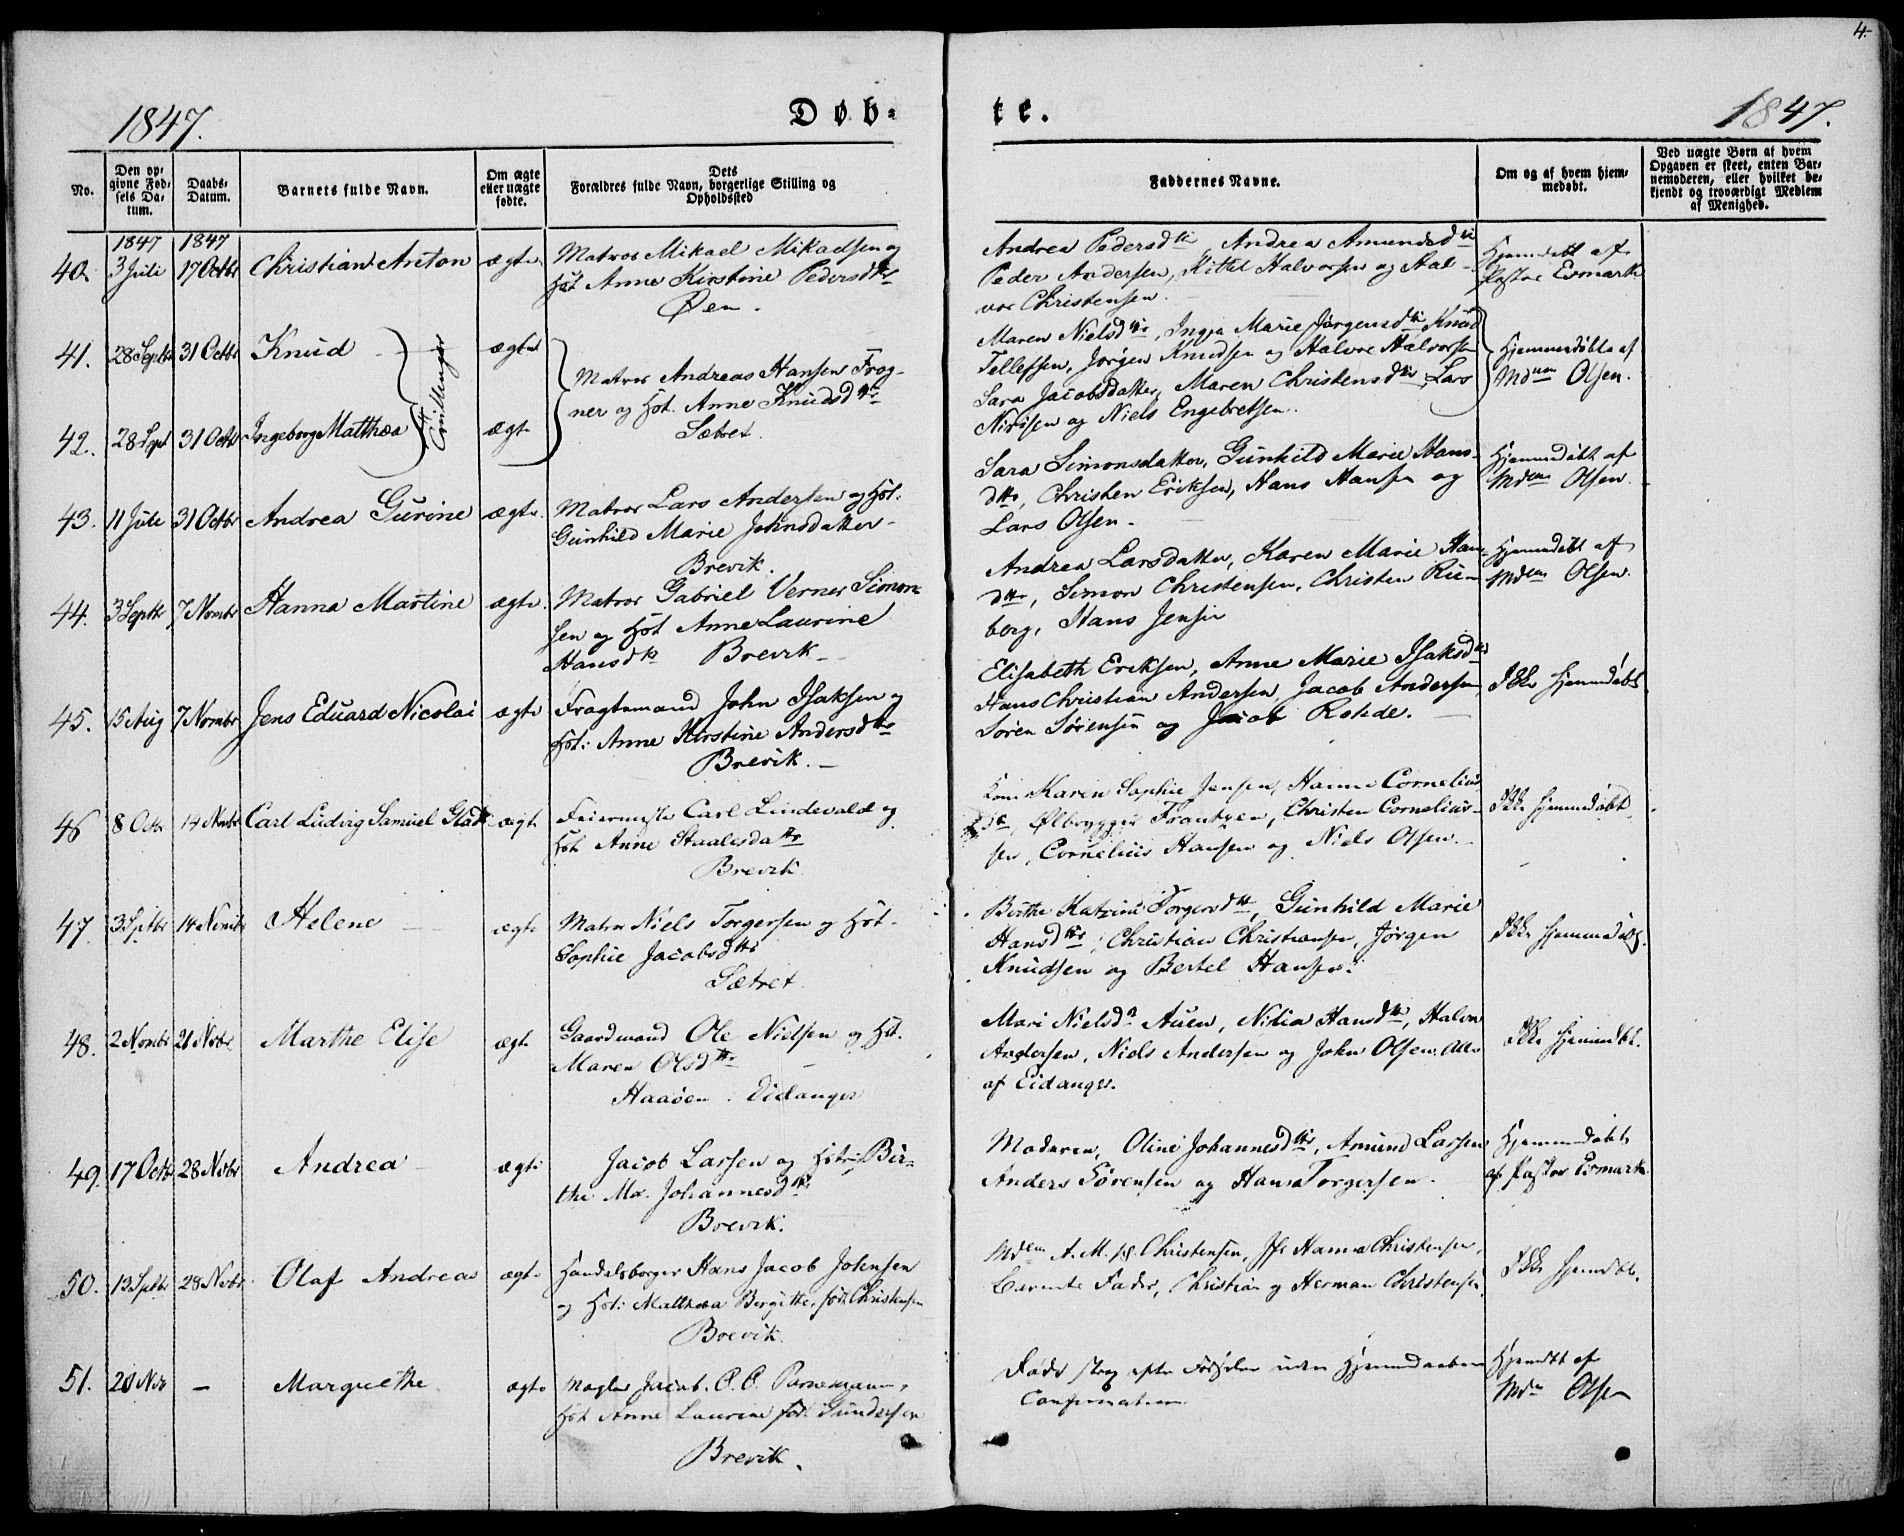 4
1847.
Døb-
te.
1847.
No.
Den op-
givne Fød-
sels Da-
tum.
Daabs-
Datum.
Barnets fulde Navn.
Om ægte
eller uægte
fødte.
Dets
Forældres fulde Navn, borgerlige Stilling og
Opholdssted
Faddernes Navne.
Om og af hvem hjem-
medøbt.
Ved uægte Børn af hvem
Opgaven er skeet, enten Bar-
nemoderen, eller hvilket be-
kjendt og troværdigt Medlem
af Menighed.
1847 1847
40. 3 Juli 17 Octbr Christian Anton ægte
Matros Mikael Mikaelsen og
Hst Anne Kirstine Pedersdtr
Øen.
Andrea Pedersdtr, Andrea Amundsdtr
Peder Andersen, Kittil Halvorsen og Hal-
vor Christensen.
Hjemdøbt af
Pastor Esmark
41. 28 Septbr 31 Octbr Knud ægte
42. 28 Sept 31 Octb Ingeborg Matthæa ægte
Tvillinger
Matros Andreas Hansen Frog-
ner og Hst. Anne Knudsdtr
Sætret.
Maren Nielsdtr, Inger Marie Jørgensdtr Knud
Tellefsen, Jørgen Knudsen og Halvor Halvorsen
Sara Jacobsdatter, Maren Christensdtr, Lars
Nirisen og Niels Engebretsen.
Hjemmedøbte af
Mdm Olsen.
43. 11 Jule 31 Octbr Andrea Gurine ægte
Matros Lars Andersen og Hst.
Gunhild Marie Johnsdatter
Brevik.
Sara Simonsdatter, Gunhild Marie Hans-
dtr, Christen Eriksen, Hans Hansen og
Lars Olsen.
Hjemmedøbt af
Mdm Olsen.
44. 3 Septbr 7 Novmbr Hanna Martine ægte
Matros Gabriel Verner Simon-
sen og Hst Anne Laurine
Hansdtr Brevik
Andrea Larsdatter, Karen Marie Han-
dtr, Simon Christensen, Christen Rün-
borg, Hans Jensen
Hjemmedøbt af
Mdm Olsen.
45. 15 Aug 7 Novmbr Jens Eduard Nicolai ægte
Fragtemand John Isaksen og
Hst: Anne Kirstine Andersdtr
Brevik.
Elisabeth Eriksen, Anne Marie Isaksdtr
Hans Christian Andersen, Jacob Andersen
Søren Sørensen og Jacob Rohde.
Ikke hjemmedøbt
46 8 Octbr 14 Novbr Carl Ludvig Samuel Gladt ægte
Feiermester Carl Lindevald og
Hst Anne Staalesdatter
Brevik
Karen Sophie Jensen, Hanne Cornelius-
Ølbrygger Frantzen, Christen Cornelius-
sen, Cornelius Hansen og Niels Olsen.
Ikke hjemmedøbt
47. 3 Sptbr 14 Novmbr Helene ægte
Matros Niels Torgersen og Hst.
Sophie Jacobsdtr
Sætret
Birthe Katrine Torgersdtr, Gunhild Marie
Hansdtr, Christian Christiansen, Jørgen
Knudsen og Bertel Hansen.
Ikke hjemmedøbt.
48. 2 Novmbr 21 Novbr. Marthe Elise ægte
Gaardmand Ole Nielsen og Hst.
Maren Olsdtr
Haaøen Eidanger
Mari Nielsdtr Auen, Nilia Hansdtr, Halvor
Andersen, Niels Andersen og John Olsen. Alle
af Eidanger.
Ikke hjemmedbt.
49. 17 Octb 28 Novbr Andrea ægte
Jacob Larsen og Hstr Bir-
the Ma. Johannesdtr
Brevik.
Moderen, Oline Johannesdtr, Amund Larsen
Anders Sørensen og Hans Torgersen.
Hjemmedøbt
af Pastor Esmark
50. 13 Sptbr 28 Novbr. Olaf Andreas ægte
Handelsborger Hans Jacob Johnsen
og Hst: Matthæa Birgitte, fød: Christensen
Brevik.
Mdm A. M. Christensen, Jfr Hanna Christensen,
Barnets Fader, Christian og Herman Christensen.
Ikke hjemdøbt.
51. 20 Nov – Margrethe ægte
Mægler Jacob. C. C. Pannemann,
Hst Anne Laurine fød. Gundersen
Brevik.
Døde strax efter Fødselen uden Hjemmedaabens
Confirmation
Hjemdbt af
Mdm Olsen